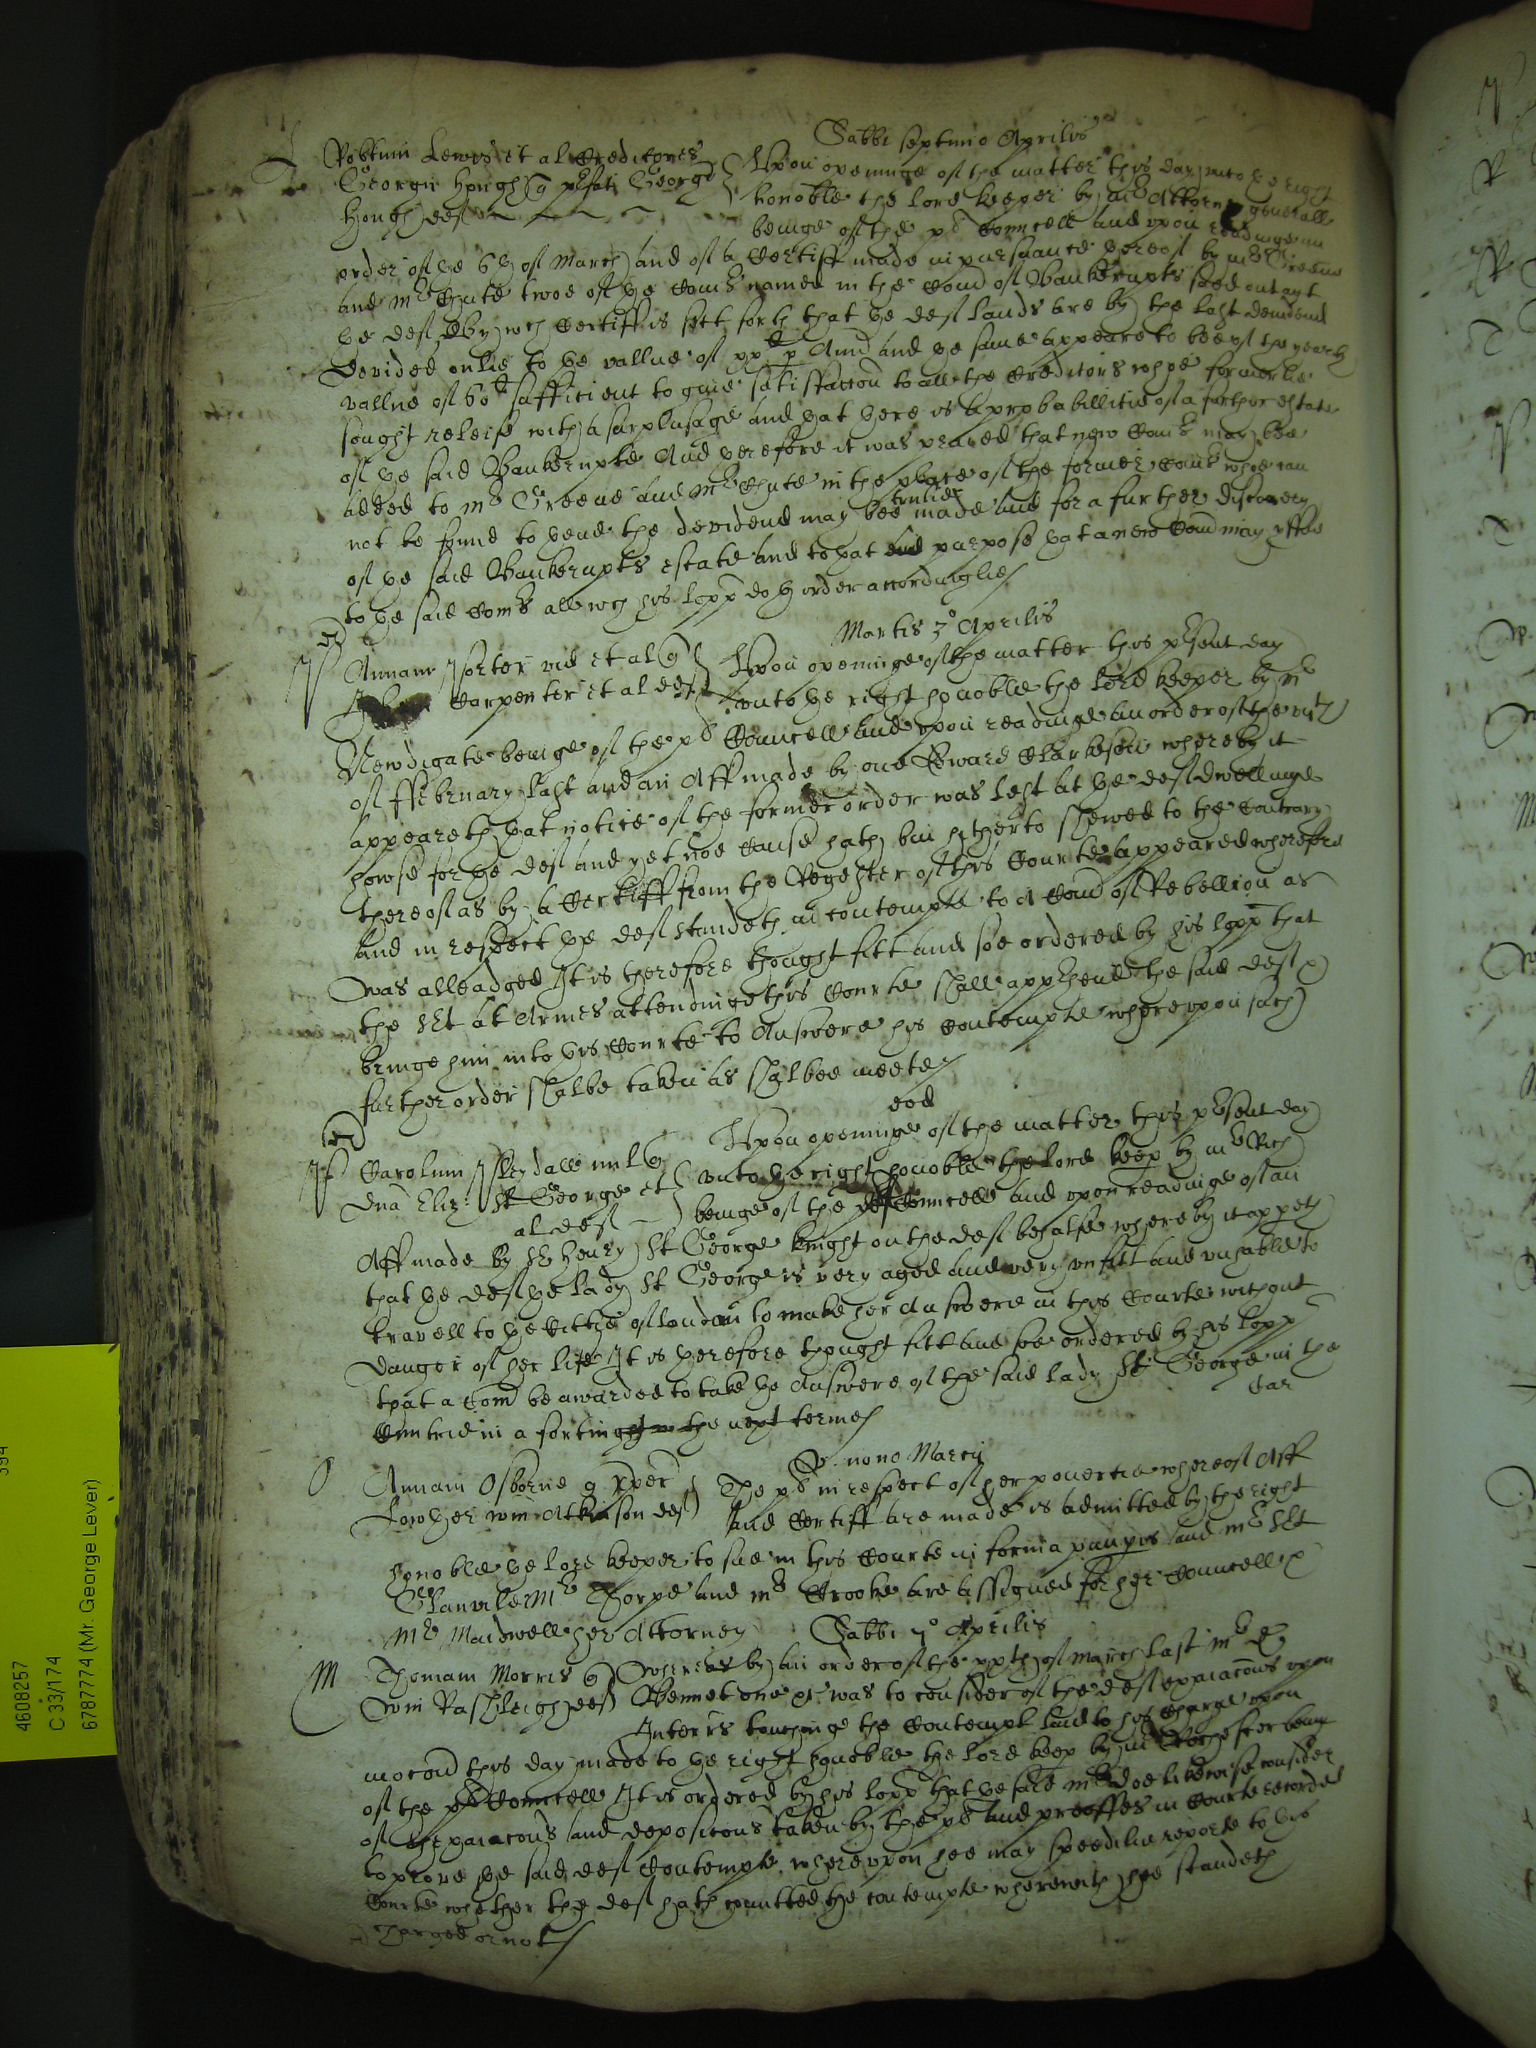 Sabbi septimo Aprilis
L Robtum Lewes et al Creditores
Georgii Hough q prefati George
Hough def
Upon openinge of the matter this day unto the right
honoble the lord keeper by mr Attorny generall
beinge of the pl Councell and upon readinge an
order of the 6th of March and of a Certiff made in pursuance thereof by mr Greene
and mr Chute twoe of the Comrs named in the Comd of Bankrupts sued out agt
the def By wch Certiff is sett forth that the def lands are by the last devidend
devided onlie to the vallue of xxl p Annu and the same appeare to bee of the yearly
vallue of 60l sufficient to give satisfaccon to all the Creditors whoe formerlie
sought releife with a surplusage and that there is a probabillitie of a further estate
of the said Bankrupte And therefore it was prayed that new Comrs may bee
added to mr Greene and mr Chute in the place of the former Comrs whoe can
not be found to thend the devidend may bee trulie made and for a further discovery
of the said Bankrupts estate and to that end purpose that a new Comd may yssue
to the said Comrs all wch his lopp doth order accordinglie
Martis 3o Aprilis
P Annam Porter vid et al q
Carpenter et al def
Upon openinge of the matter this psent day
unto the right honoble the lord keeper by mr
Newdigate beinge of the pl Councell and upon readinge an order of the
of ffebruary last and an Aff made by one Edward Clarkeson whereby it
appeareth that notice of the former order was left at the def dwellinge
howse for the def and yet noe cause hath bin hitherto shewed to the Contrary
thereof as by a Certiff from the Regester of this Courte appeared wherefore
and in respect the def standeth in contempte to a Comd of Rebellion as
was alleadged It is therefore thought fitt and soe ordered by his lopp that
the Sjt at Armes attendinge this Courte shall apphend the said def &
bringe him into this Courte to Answere his Contempte whereupon such
further order shalbe taken as shalbee meete
eod
P Carolum Pleydall mil q
dna Eliz St George et
al def
Upon openinge of the matter this psent day
unto the right honoble the lord keep by mr Rich
beinge of the def Councell and upon readinge of an
Aff made by Sr Henry St George knight on the def behalfe whereby it appeth
that the def the lady St George is very aged and very unfitt and unable to
travell to the Cittie of London to make her Answere in this Courte without
danger of her life It is therefore thought fitt and soe ordered by his lopp
that a Comd be awarded to take the Answere of the said lady St George in the
Cuntrie in a fortnight the next terme
Car
nono Marcii
O Annam Osborne q Xpofer
Lowther Wm Atkinson def
The pl in respect of her povertie whereof Aff
and Certiff are made is admitted by the right
honoble the lord keeper to sue in this Courte in forma pauperis and mr Sjt
Glanvile Mr Thorpe and mr Crooke are assigned for her Councell &
Mr Maidwell her Attorney
Sabbi 7o Aprilis
M Thomam Morris q
Wm Rashleigh def
Whereas by an order of the xxth of March last mr Dr
Bennet one &c was to consider of the def expiacons upon
Interrs touchinge the Contempt laid to his Charge upon
mocond this day made to the right honoble the lord keep by mr Rochester being
of the pl Councell It is ordered by his lopp that the said mr doe likewise consider
of thexpiacons and deposicons taken by the pl and prooffes in Courte recorded
to prove the said def Contempte whereupon hee may speedilie reporte to this
Courte whether the def hath comitted the contempte wherewith hee standeth
Charged or not
4608257
C 33/174
6787774 (Mr. George Lever)
394